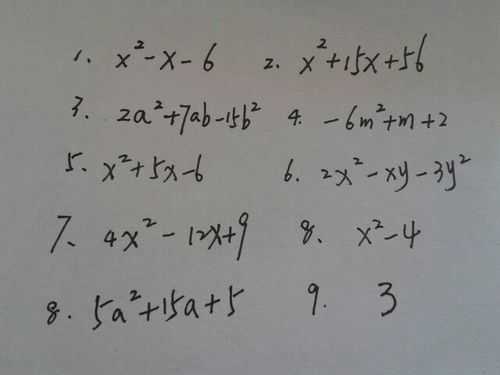 1. x²-x-6 2. x²+15x+56
3. 2a²+7ab-15b² 4. -6m²+m+2
5. x²+5x-6 6. 2x²-xy-3y²
7. 4x²-12x+9 8. x²-4
8. 5a²+15a+5 9. 3